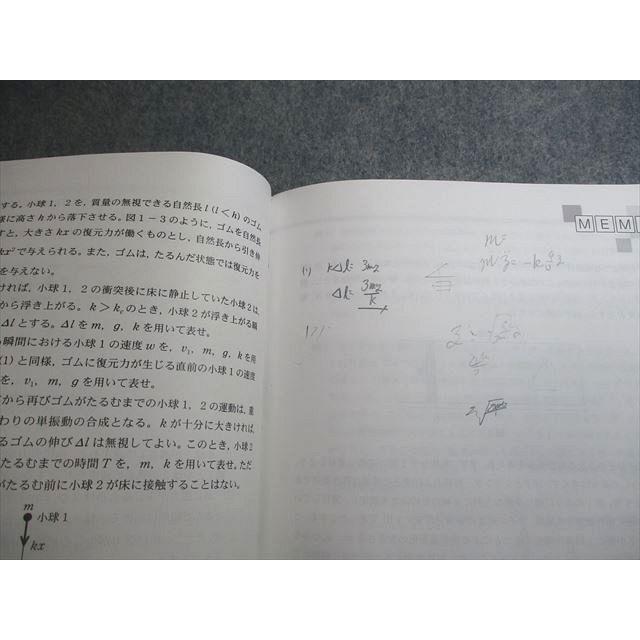 する。小球1, 2を, 質量の無視できる自然長l(l<h)のゴム
様に高さhから落下させる。図1-3のように, ゴムを自然長
すと, 大きさkxの復元力が働くものとし, 自然長から引き伸
kx²で与えられる。また, ゴムは, たるんだ状態では復元力を
を与えない。
ければ, 小球1, 2の衝突後に床に静止していた小球2は,
から浮き上がる。k>kcのとき, 小球2が浮き上がる瞬
Δlとする。Δlをm, g, kを用いて表せ。
る瞬間における小球1の速度wを, v₁, m, g, kを用
(1)と同様, ゴムに復元力が生じる直前の小球1の速度
を, v₁, m, gを用いて表せ。
から再びゴムがたるむまでの小球1, 2の運動は, 重
わりの単振動の合成となる。kが十分に大きければ,
るゴムの伸びΔlは無視してよい。このとき, 小球2
たるむまでの時間Tを, m, kを用いて表せ。ただ
がたるむ前に小球2が床に接触することはない。
m
小球1
kx
MEM
(1) kΔl = 3mg
Δl = 3mg/k
m